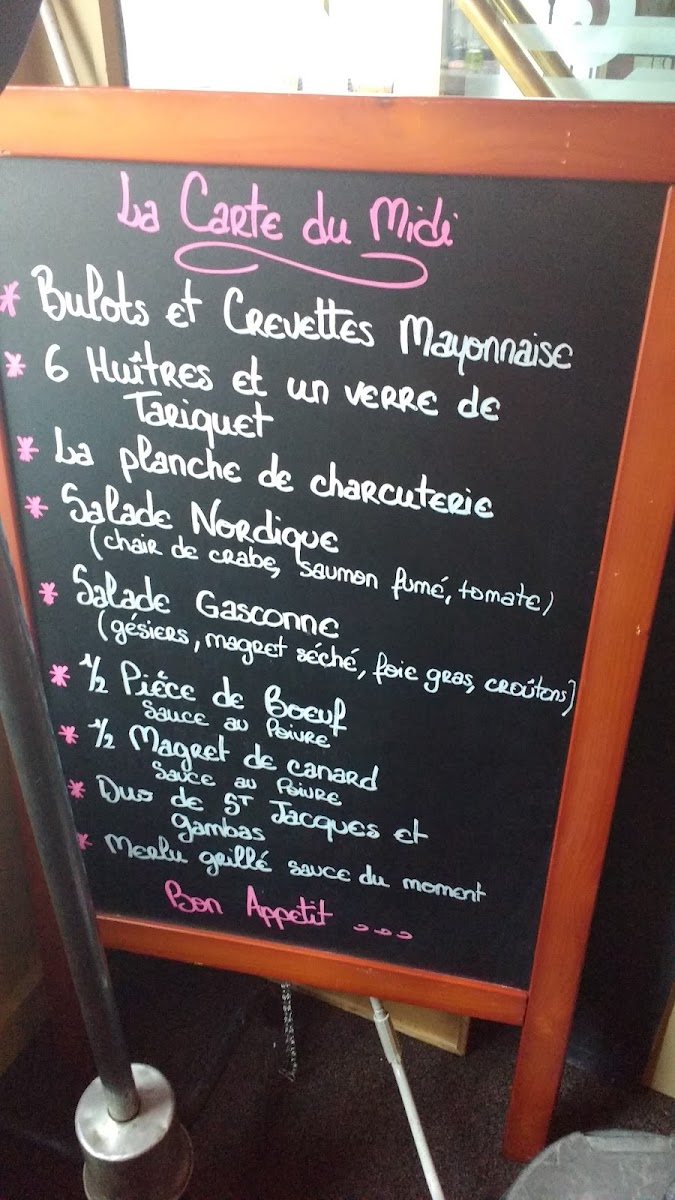 La Carte du Midi
* Bulots et Crevettes Mayonnaise
* 6 Huîtres et un verre de
Tariquet
* La planche de charcuterie
* Salade Nordique
(chair de crabe, saumon fumé, tomate)
* Salade Gasconne
(gésiers, magret séché, foie gras, croûtons)
* 1/2 Pièce de Boeuf
Sauce au Poivre
* 1/2 Magret de canard
Sauce au Poivre
* Duo de St Jacques et
gambas
* Merlu grillé sauce du moment
Bon Appetit ...